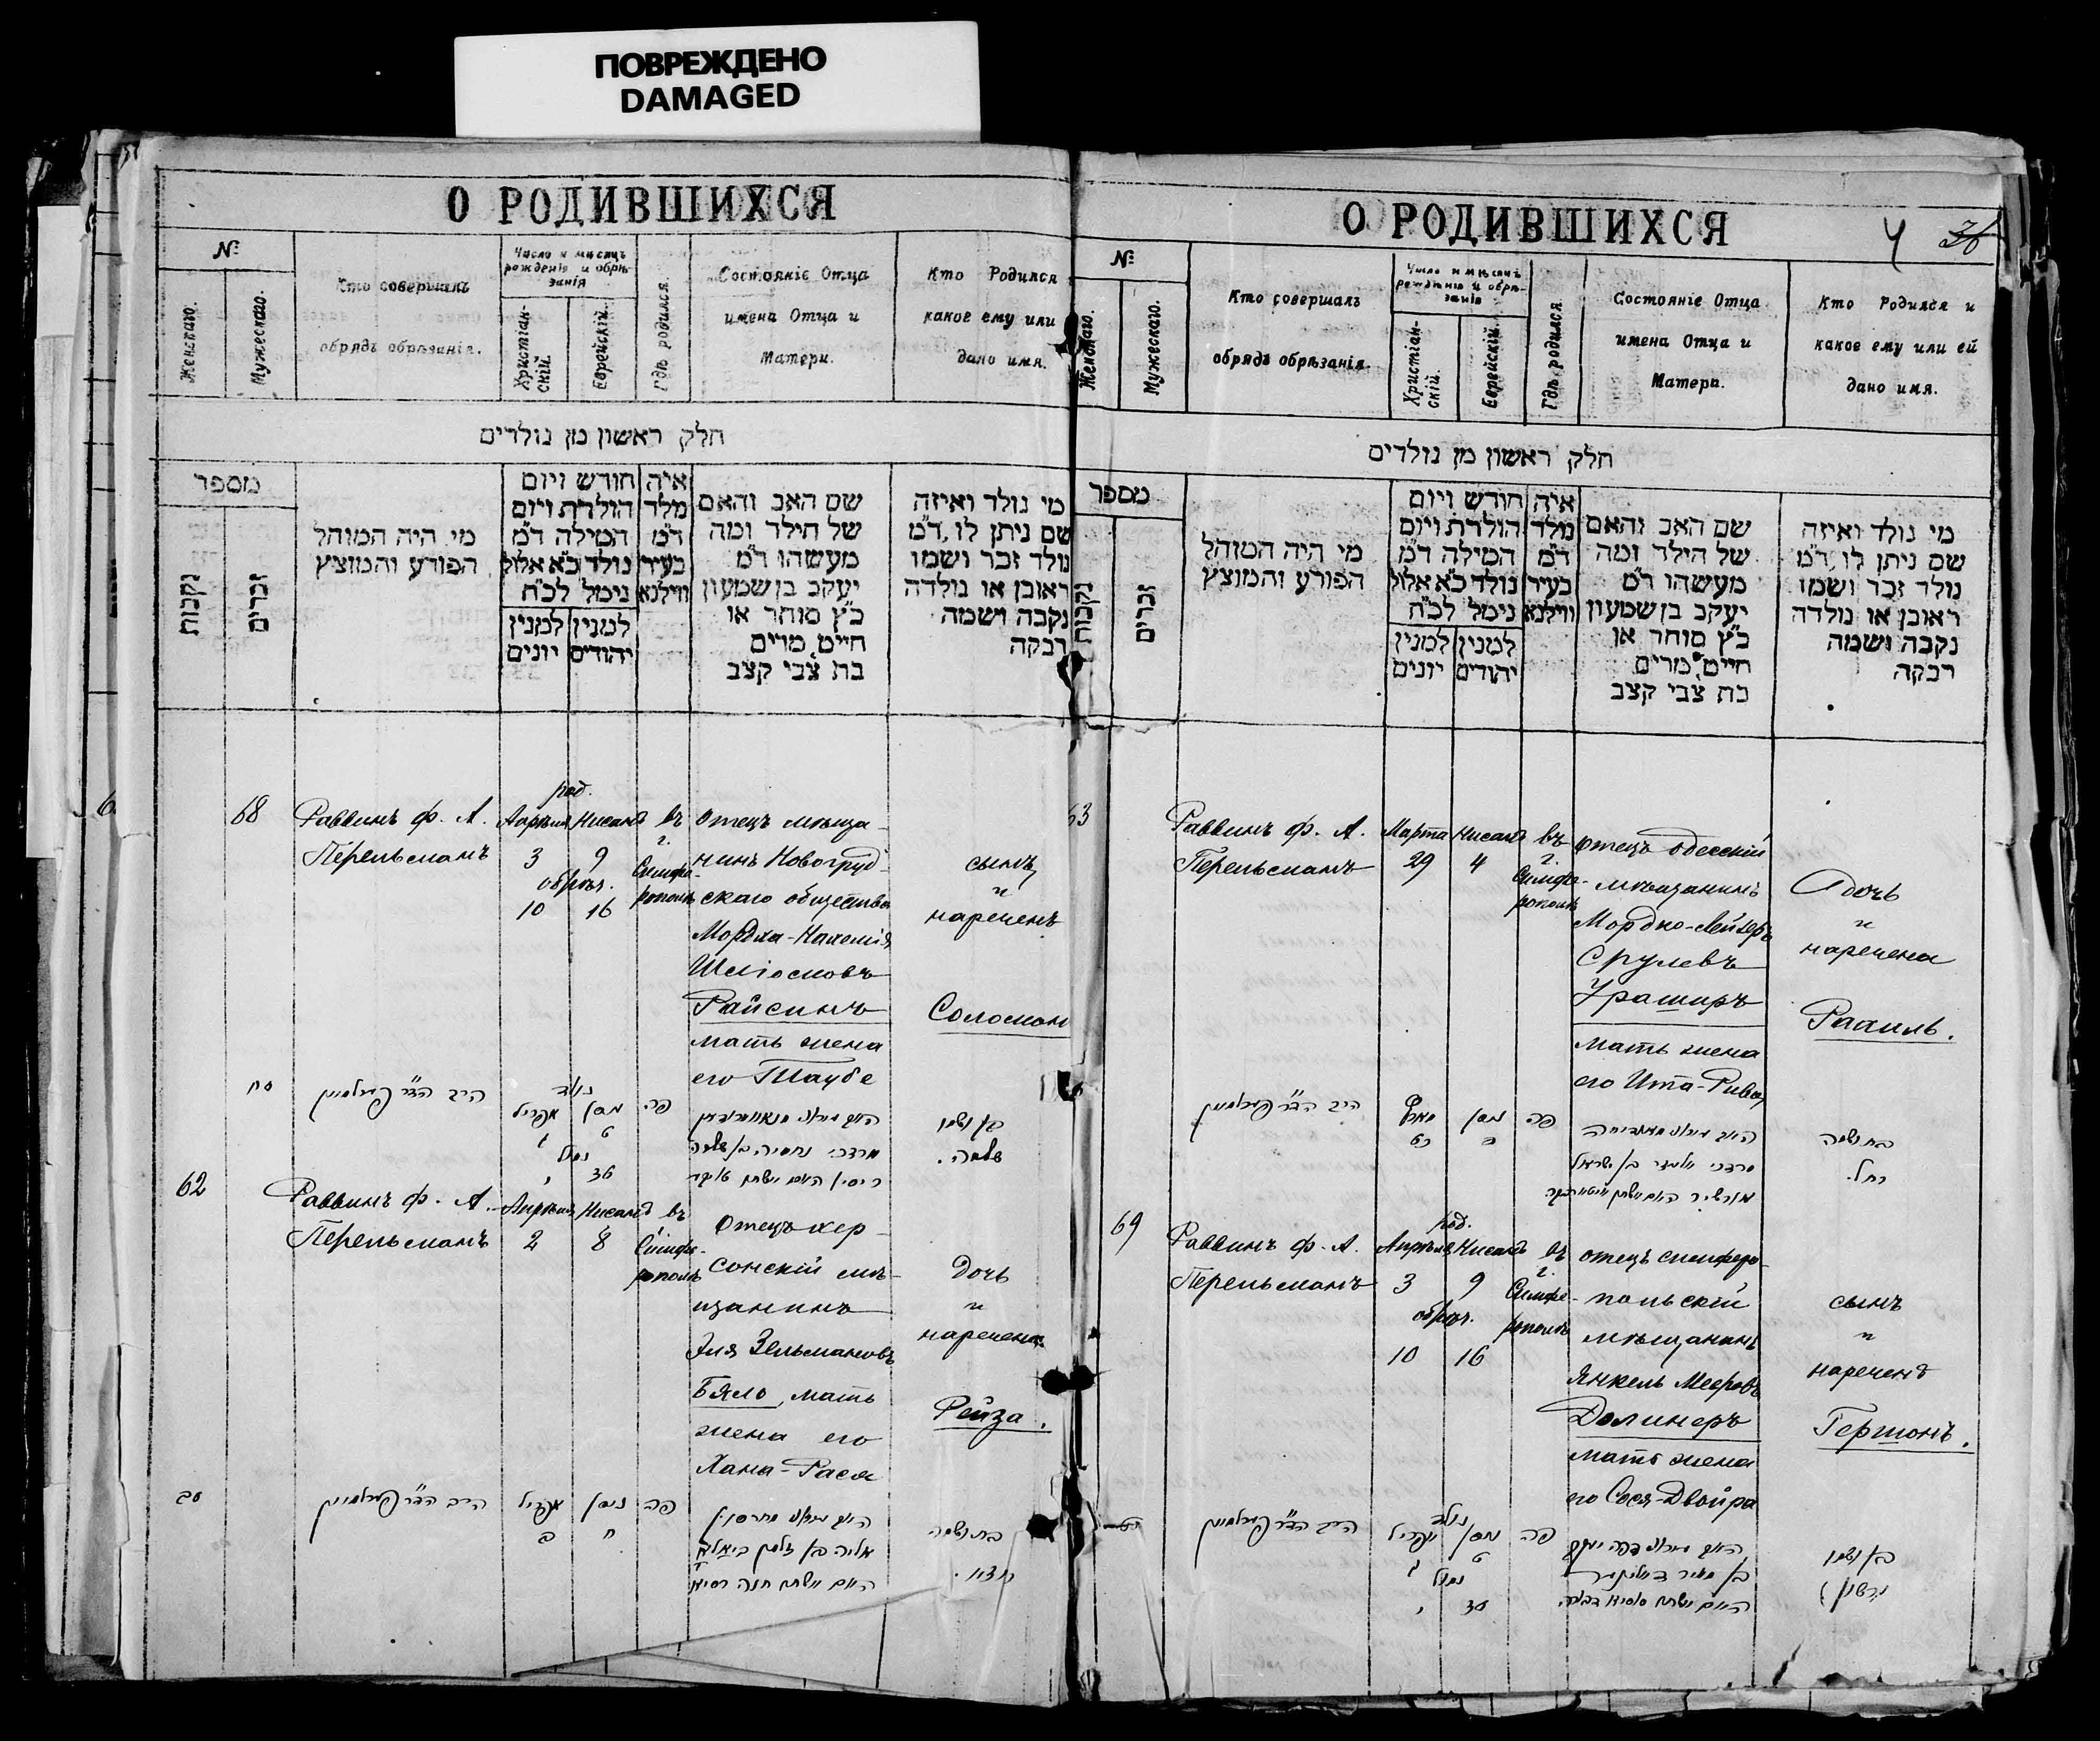 ПОВРЕЖДЕНО
DAMAGED
О РОДИВШИХСЯ
№
Женскаго.
Мужескаго.
Кто совершалъ
обрядъ обрѣзанія.
Число и мѣсяцъ
рожденія и обрѣ-
занія
Христіан-
скій.
Еврейскій.
Гдѣ родился.
Состояніе Отца
имена Отца и
Матери.
Кто Родился
какое ему или
дано имя.
חלק ראשון מן נולדים
מספר
נקבות
זכרים
מי היה המוהל
הפורע והמוצץ
חורש ויום
הולדת ויום
המילה ד"מ
נולד כ"א אלול
נימל לכ"ח
למנין
יהודים
למנין
יונים
איה
מלד
ד"מ
בעיר
ווילנא
שם האב והאם
של הילד ומה
מעשהו ד"מ
יעקב בן שמעון
כ"ץ סוחר או
חייט, מרים
בת צבי קצב
מי נולד ואיזה
שם ניתן לו, ד"מ
נולד זכר ושמו
ראובן או נולדה
נקבה ושמה
רבקה
68
Раввинъ Ф. А.
Перельманъ
род.
Апрѣля Нисанъ
3 9
обрѣз.
10 16
въ
г.
Симфе-
рополѣ
Отецъ мѣща-
нинъ Новогруд-
скаго общества
Мордха-Нахемія
Шліомовъ
Райсинъ
мать жена
его Таубе
сынъ
и
нареченъ
Соломон
סח
הרב הד"ר פערלמאן
נולד
ניסן אפריל
ט ג
נמול
טז י
פה
מרדכי נחמיה בן שלמה
בן ושמו
שלמה.
62
Раввинъ Ф. А.
Перельманъ
Апрѣля Нисанъ
2 8
въ
Симфе-
рополѣ
Отецъ хер-
сонскій мѣ-
щанинъ
Эля Зельмановъ
Бяло, мать
жена его
Хана-Рася
Дочь
и
наречена
Рейза.
סב
הרב הד"ר פערלמאן
ניסן אפריל
ח ב
פה
אליה בן זלמן ביאלא
האם אשתו חנה רסיא
בת ושמה
О РОДИВШИХСЯ
4 36
№
Женскаго.
Мужескаго.
Кто совершалъ
обрядъ обрѣзанія.
Число и мѣсяцъ
рожденія и обрѣ-
занія
Христіан-
скій.
Еврейскій.
Гдѣ родился
Состояніе Отца
имена Отца и
Матери.
Кто Родился и
какое ему или ей
дано имя.
חלק ראשון מן נולדים
מספר
נקבות
זכרים
מי היה המוהל
הפורע והמוצץ
חורש ויום
הולדת ויום
המילה ד"מ
נולד כ"א אלול
נימל לכ"ח
למנין
יהודים
למנין
יונים
איה
מלד
ד"מ
בעיר
ווילנא
שם האב והאם
של הילד ומה
מעשהו ד"מ
יעקב בן שמעון
כ"ץ סוחר או
חייט, מרים
בת צבי קצב
מי נולד ואיזה
שם ניתן לו, ד"מ
נולד זכר ושמו
ראובן או נולדה
נקבה ושמה
רבקה
63
Раввинъ Ф. А.
Перельманъ
Марта Нисанъ
29 4
въ
г.
Симфе-
рополѣ
Отецъ одесскій
мѣщанинъ
Мордко-Лейзеръ
Срулевъ
Ураширъ
мать жена
его Ита-Рива
Дочь
и
наречена
Рахиль.
הרב הד"ר פערלמאן
ניסן
פה
בת ושמה
רחל.
69
Раввинъ Ф. А.
Перельманъ
род.
Апрѣля Нисанъ
3 9
обрѣз.
10 16
въ
г.
Симфе-
рополѣ
отецъ симферо-
польскій
мѣщанинъ
Янкель Мееровъ
Долинеръ
мать жена
его Сося-Двойра
сынъ
и
нареченъ
Гершонъ.
הרב הד"ר פערלמאן
נולד
ניסן אפריל
ט ג
נמול
טז י
פה
בן ושמו
גרשון